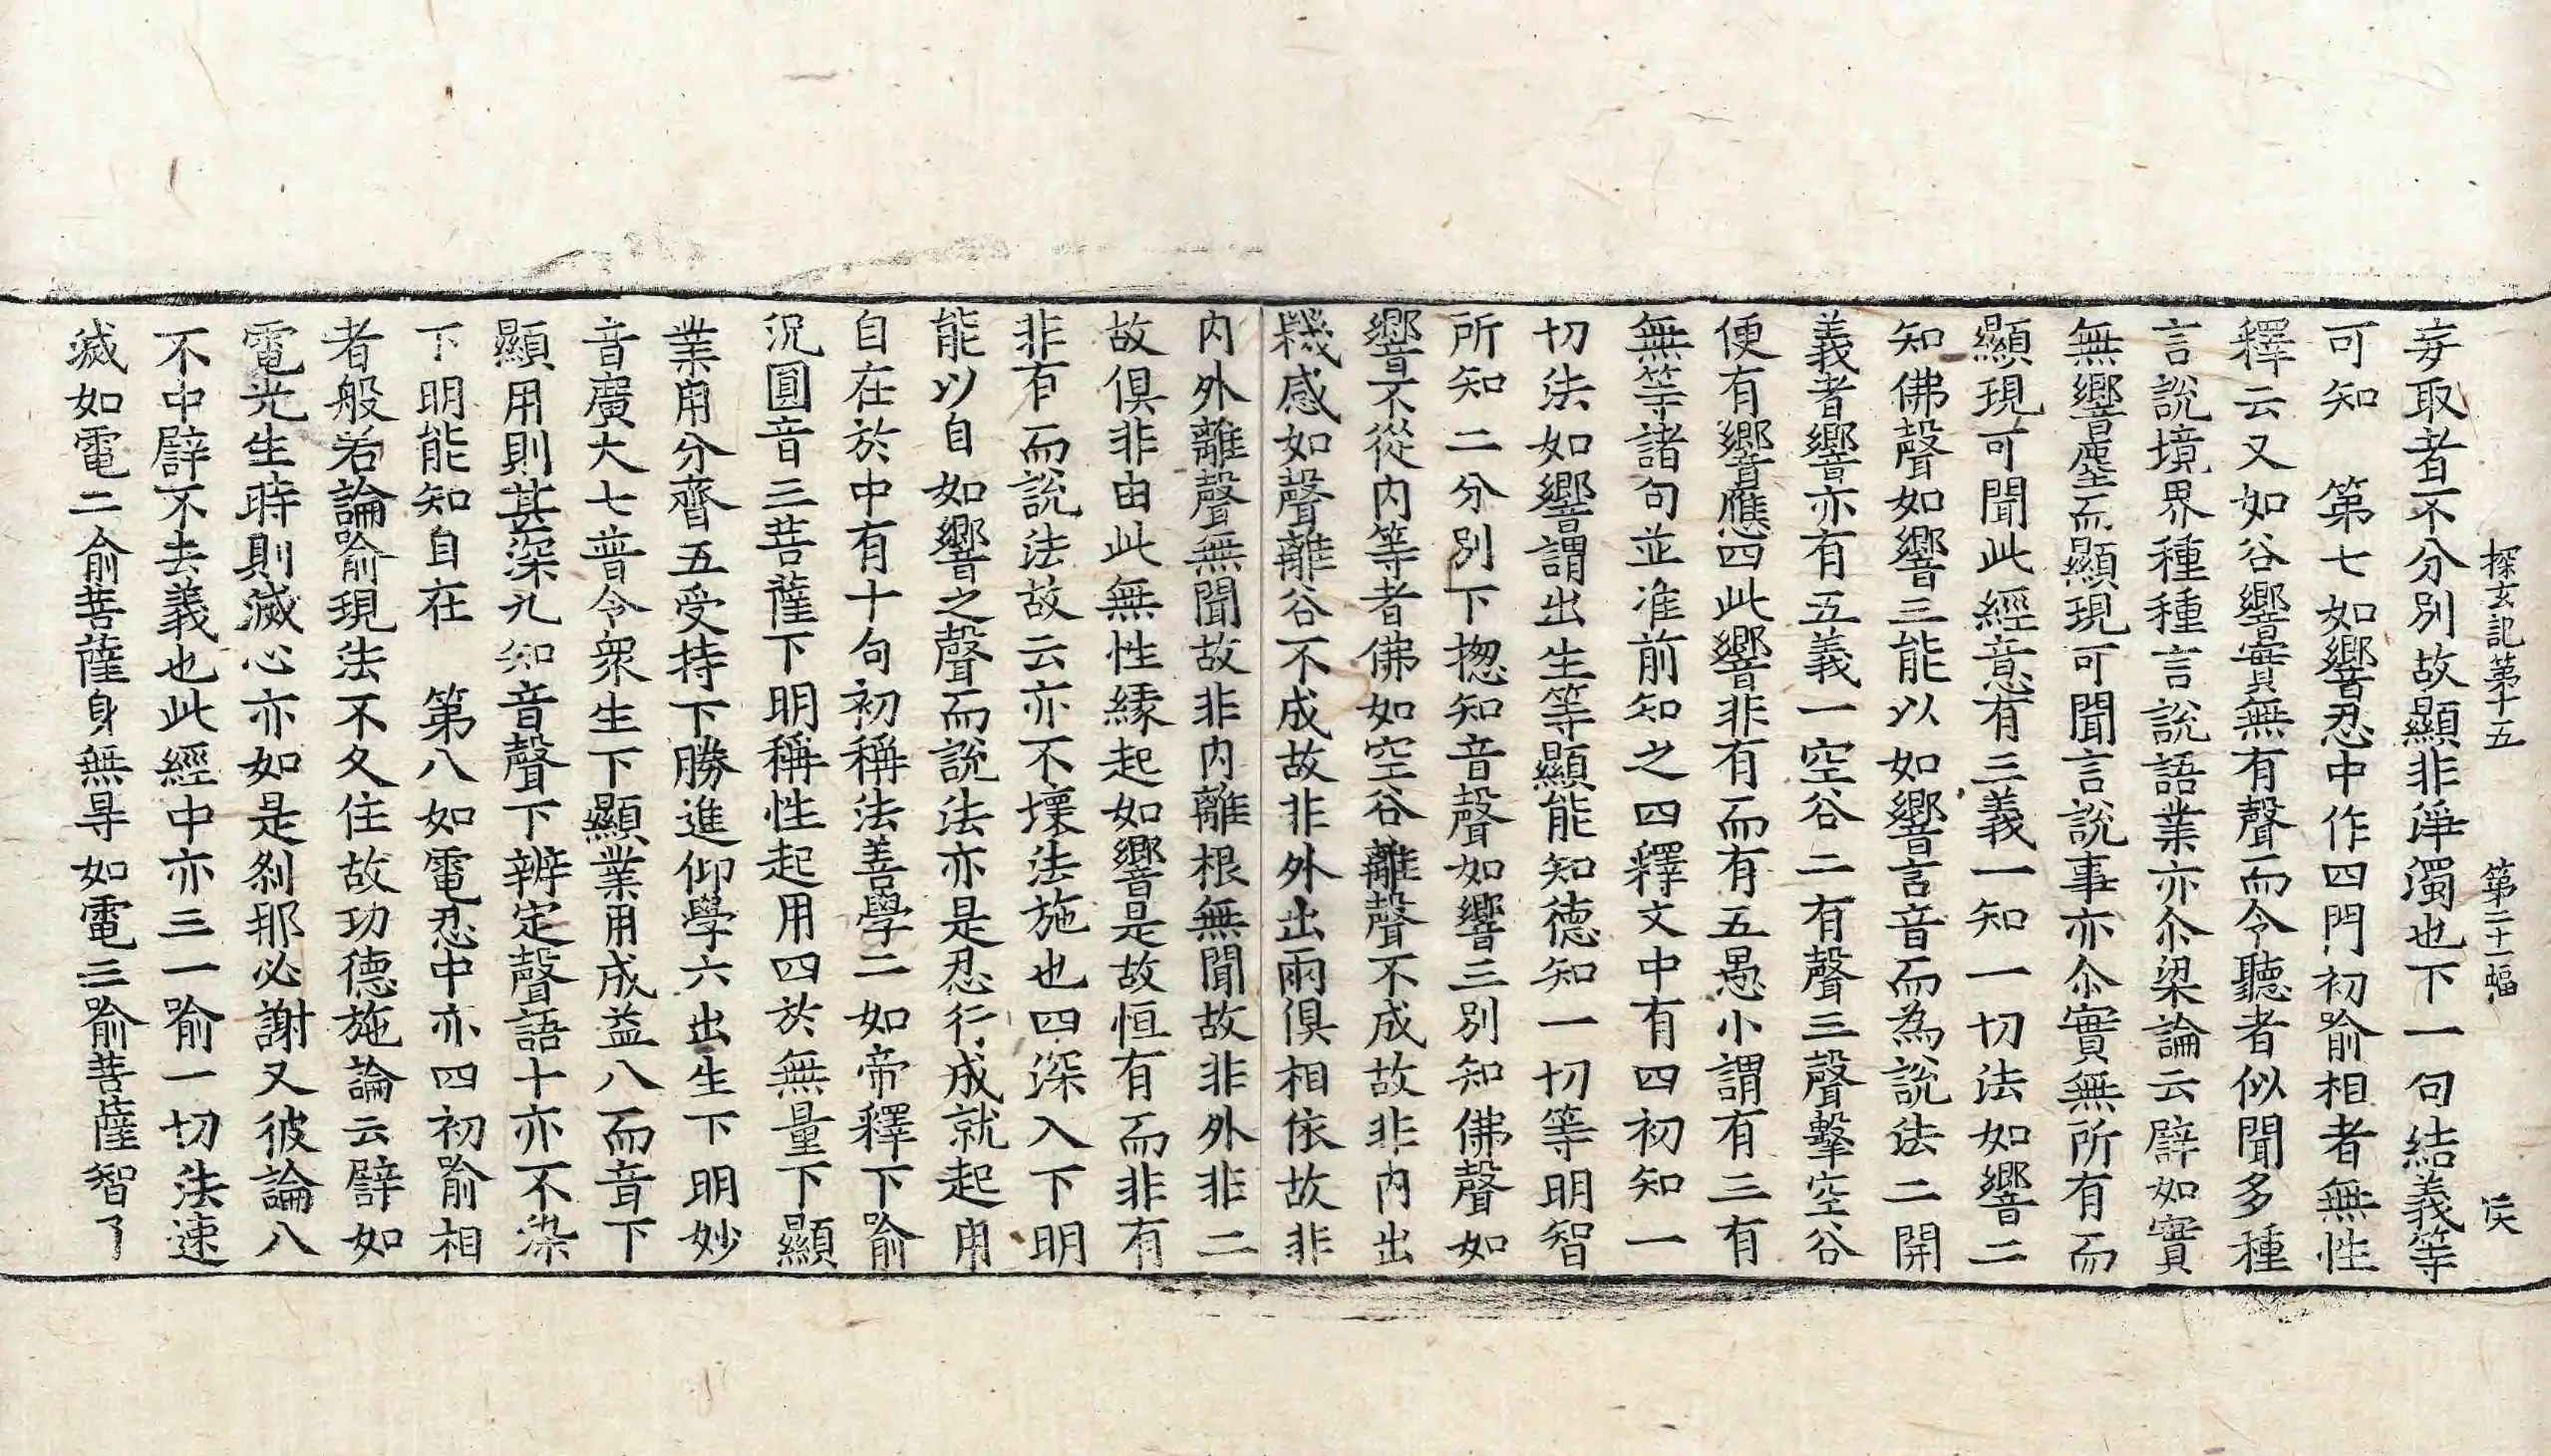 探玄記第十五　第二十一幅　俟
妄取者不分別故顯非淨濁也下一句結義等
可知　第七如響忍中作四門初喻相者無性
釋云又如谷響實無有聲而令聽者似聞多種
言說境界種種言說語業亦尒梁論云譬如實
無響塵而顯現可聞言說事亦尒實無所有而
顯現可聞此經意有三義一知一切法如響二
知佛聲如響三能以如響言音而為說法二開
義者響亦有五義一空谷二有聲三聲擊空谷
便有響應四此響非有而有五愚小謂有三有
無等諸句並准前知之四釋文中有四初知一
切法如響謂出生等顯能知德知一切等明智
所知二分別下揔知音聲如響三別知佛聲如
響不從內等者佛如空谷離聲不成故非內出
機感如聲離谷不成故非外出兩俱相依故非
內外離聲無聞故非內離根無聞故非外非二
故俱非由此無性緣起如響是故恒有而非有
非有而說法故云亦不壞法施也四深入下明
能以自如響之聲而說法亦是忍行成就起用
自在於中有十句初稱法善學二如帝釋下喻
況圓音三菩薩下明稱性起用四於無量下顯
業用分齊五受持下勝進仰學六出生下明妙
音廣大七普令衆生下顯業用成益八而音下
顯用則甚深九知音聲下辨定聲語十亦不染
下明能知自在　第八如電忍中亦四初喻相
者般若論喻現法不久住故功德施論云譬如
電光生時則滅心亦如是剎那必謝又彼論八
不中譬不去義也此經中亦三一喻一切法速
滅如電二俞菩薩身無㝵如電三喻菩薩智了